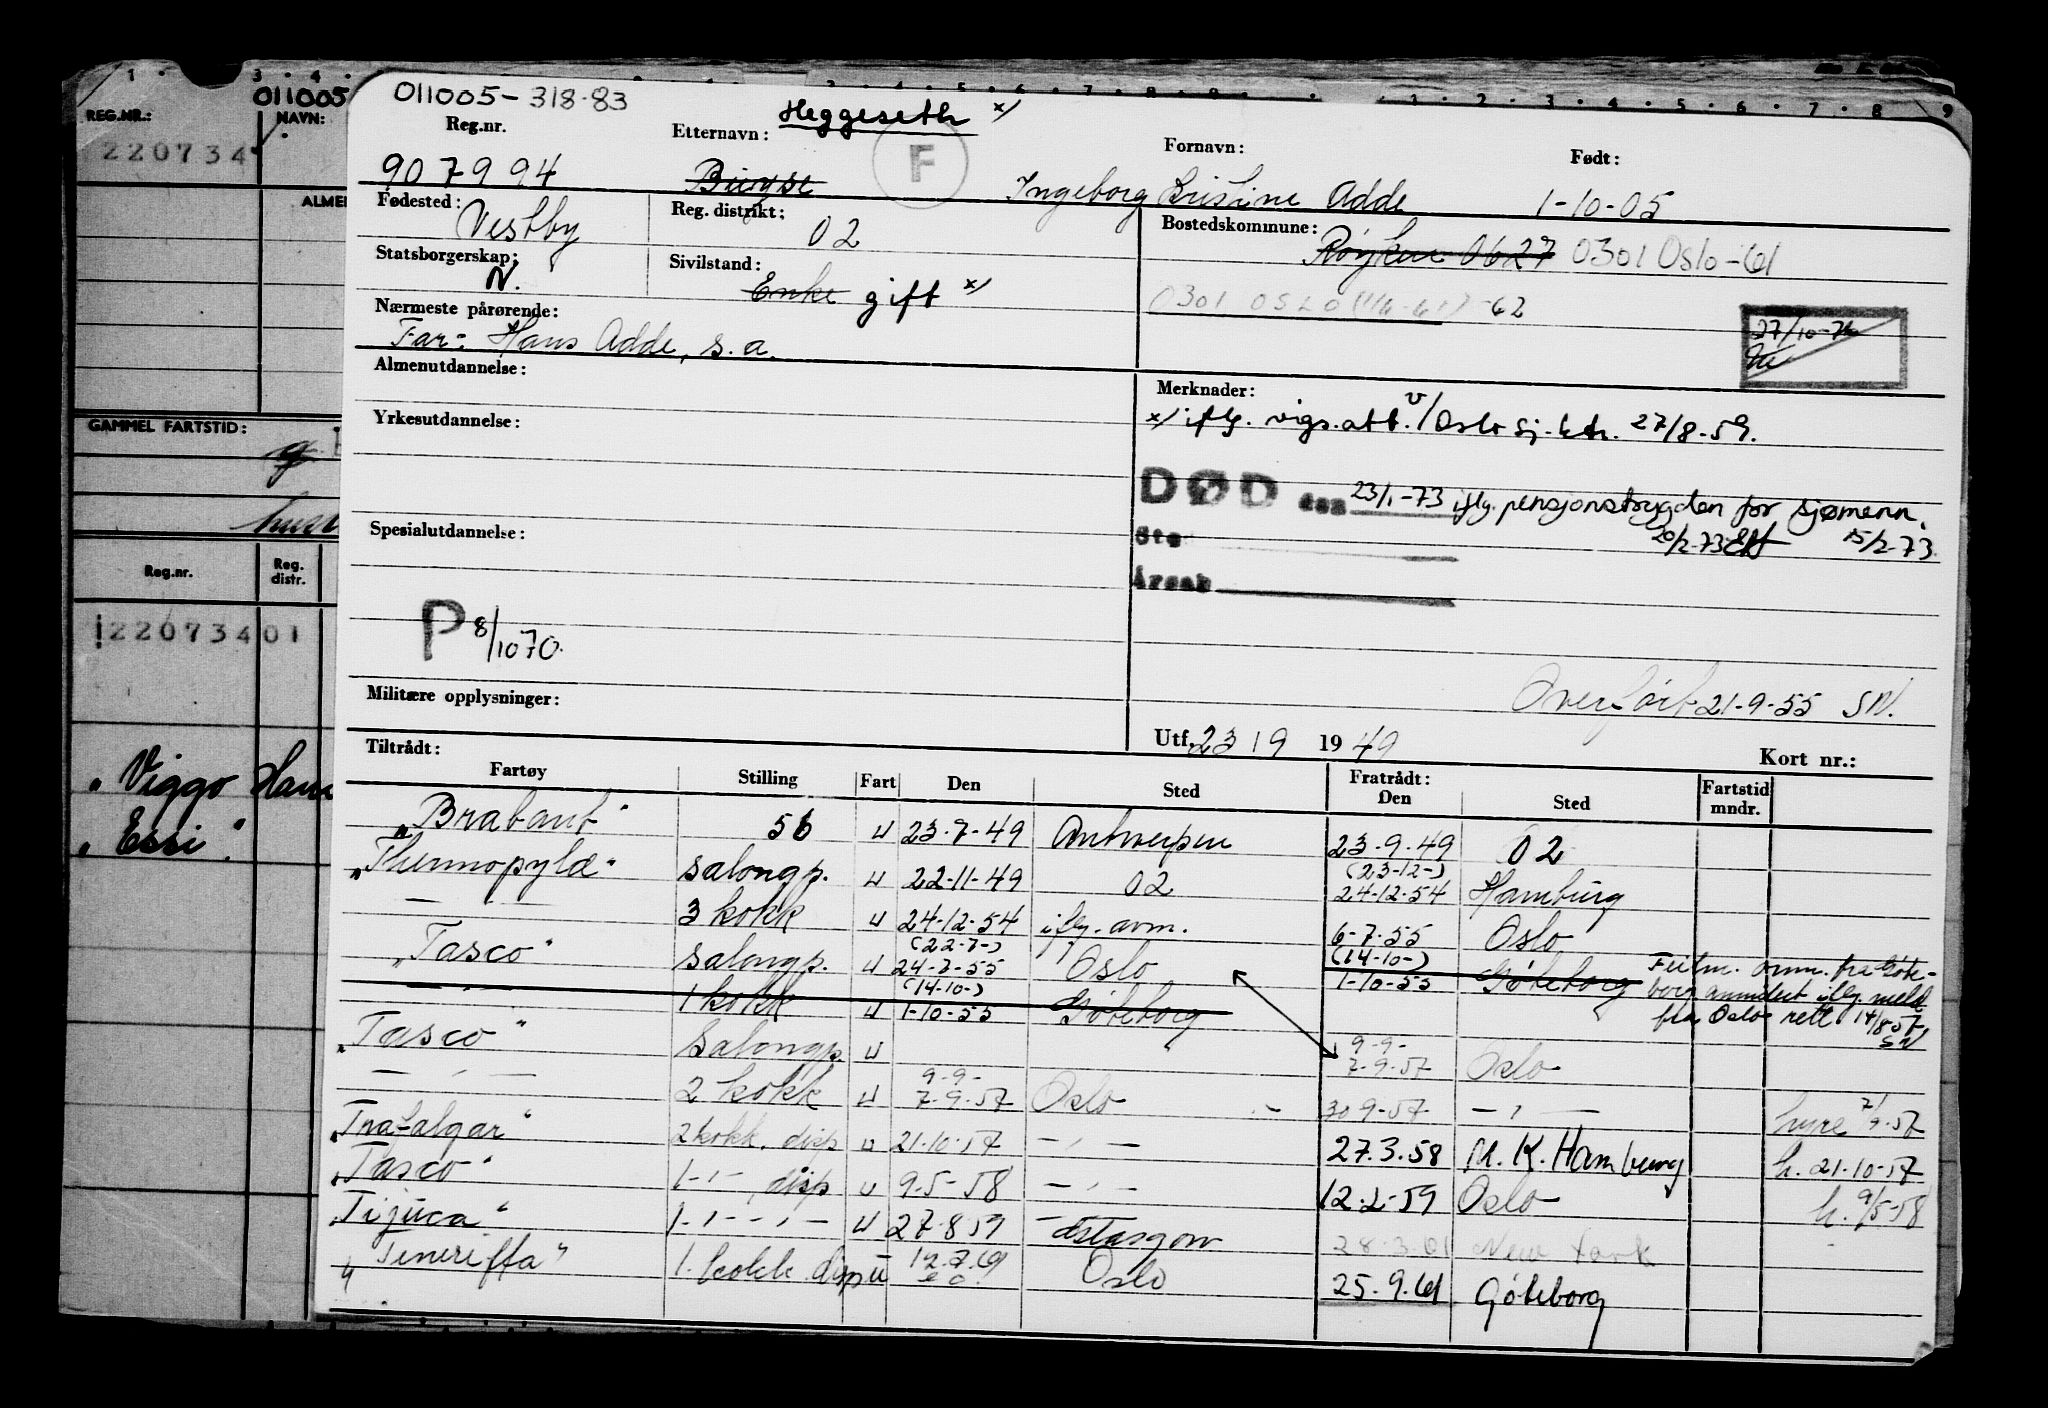 REG.NR.:
011005
NAVN:
220734
GAMMEL FARTSTID:
Reg.nr.
Reg. distr.
122073401
„ Viggo Hans
„ Essi".
011005-318.83
Heggeseth x/
Reg.nr. Etternavn: F Fornavn: Født:
907994 Ingeborg Kristine Adde 1-10-05
Fødested: Vestby Reg. distrikt: 02 Bostedskommune: Røyken 0627 0301 Oslo-61
Statsborgerskap: N. Sivilstand: Enke gift x/
0301 OSLO -62
Nærmeste pårørende:
Far: Hans Adde, s.a.
27/10-
Almenutdannelse: Merknader:
x/ iflg. vigs.att. v/Oslo sj.ktr. 27/8-59.
Yrkesutdannelse:
DØD den 23/1-73 iflg. pensjonstrygden for sjømenn.
20/2-73 15/2-73
Sted
Årsak
Spesialutdannelse:
P 8/1070.
Overført 21-9-55 SN.
Militære opplysninger:
Utf. 23 19 1949 Kort nr.:
Tiltrådt: Fratrådt:
Fartøy Stilling Fart Den Sted Den Sted Fartstid mndr.
„Brabant" 56 u 23-7-49 Antwerpen 23-9-49 02
„Thermopylæ" salongp. u 22-11-49 02 (23-12-) 24-12-54 Hamburg
— " — 3 kokk u 24-12-54 iflg. avm. 6-7-55 Oslo
„Tasco" salongp. u (22-7-) 24-7-55 Oslo (14-10-) 1-10-55 Göteborg
— " — 1 kokk u (14-10-) 1-10-55 Göteborg
anm. fra Göteborg annulert iflg. meld fra Oslo rett 14/8 57. SN
„Tasco" Salongp. u 9-9- 7-9-57 Oslo
— " — 2 kokk u 9-9- 7-9-57 Oslo 30-9-57 — " — hyre 7/9-57
„Trafalgar" 2 kokk, disp u 21-10-57 — " — 27.3.58 M.K. Hamburg h. 21-10-57
„Tasco" 1 - " - disp u 9-5-58 — " — 12.2-59 Oslo h. 9/5-58
„Tijuca" 1 - " - - " - u 27-8 59 28-3-61 New York
„Teneriffa" 1. kokk disp u Oslo 25.9.61 Göteborg